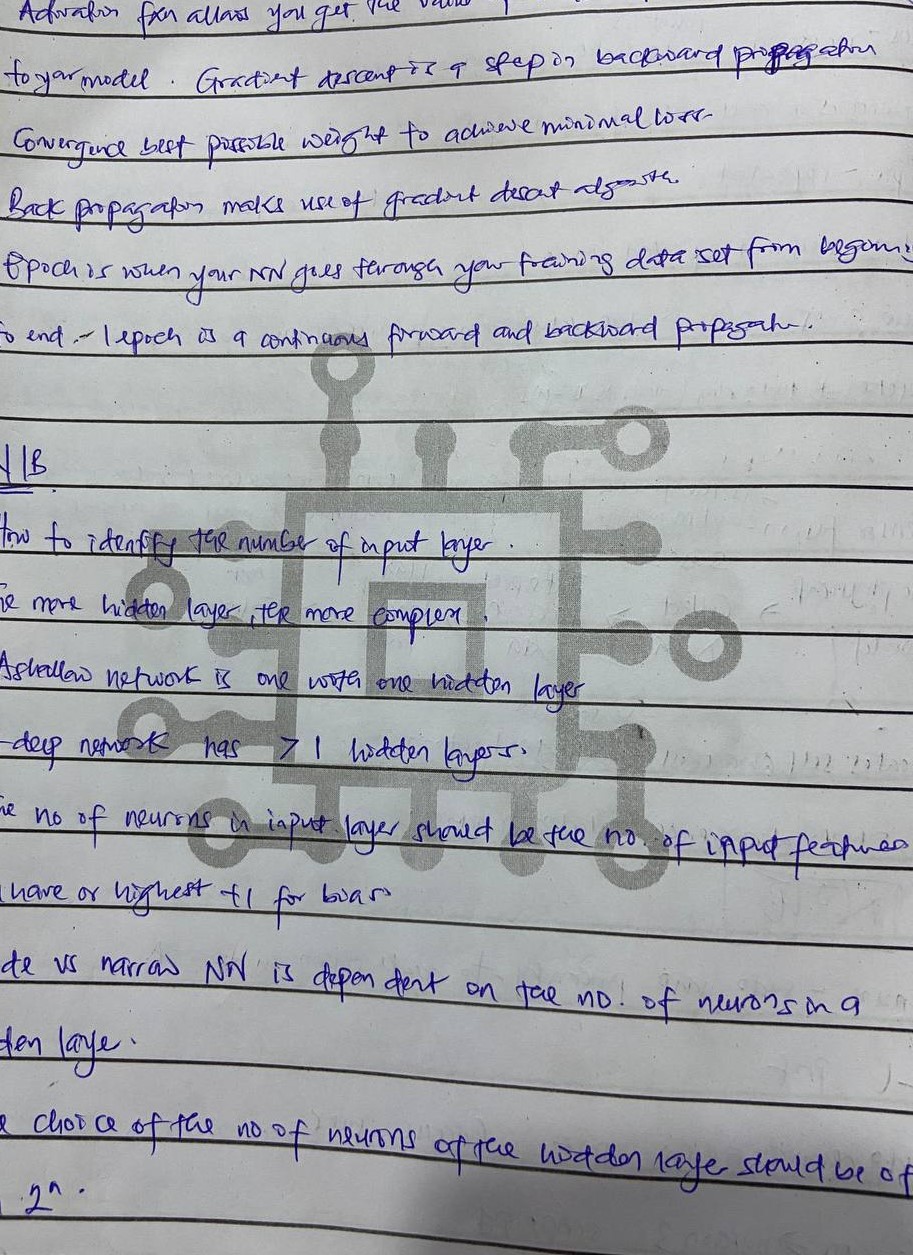 Activation fxn allows you get the value
to your model. Gradient descent is a step in backward propagation
Convergence best possible weight to achieve minimal loss
Back propagation makes use of gradient descent algorithm
Epoch is when your NN goes through your training data set from beginni
to end - 1 epoch is a continuous forward and backward propagatn.
11B
How to identify the number of input layer.
he more hidden layer, the more complex.
A shallow network is one with one hidden layer
deep network has > 1 hidden layers.
he no of neurons in input layer should be the no. of input features
have or highest +1 for bias
de vs narrow NN is dependent on the no. of neurons in a
den laye.
e choice of the no of neurons of the hidden laye should be of
2ⁿ.